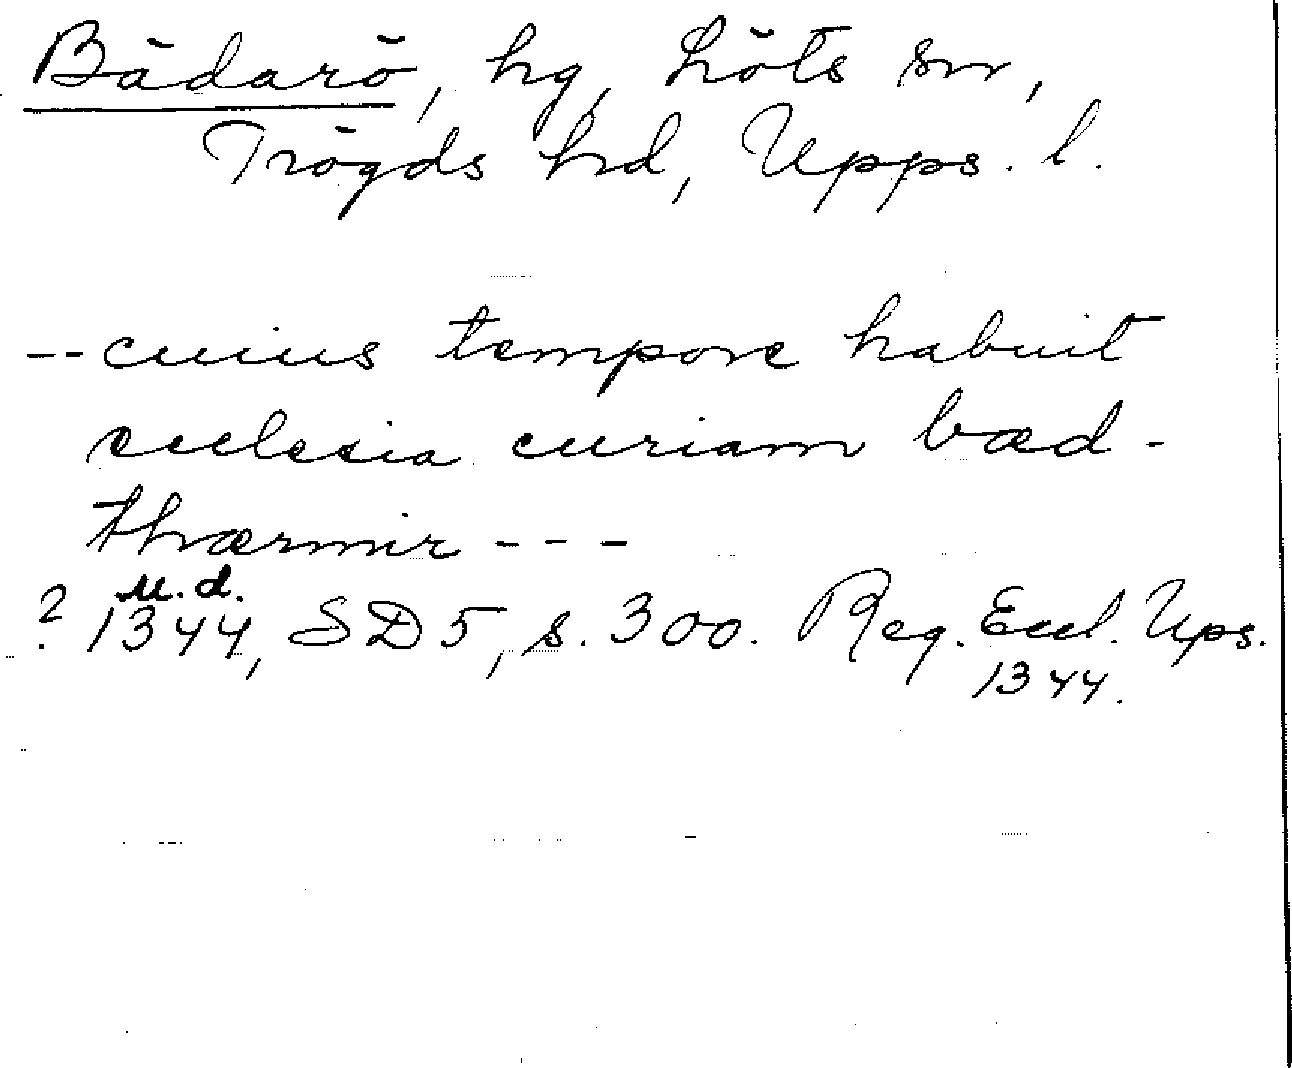 Bädarö, hg, Löts sn,
Trögds hd, Upps. l.
-- cuius tempore habuit
ecclesia curiam bæd-
thærmir ---
u.d.
? 1344, SD 5, s. 300. Reg. Eccl. Ups.
1344.